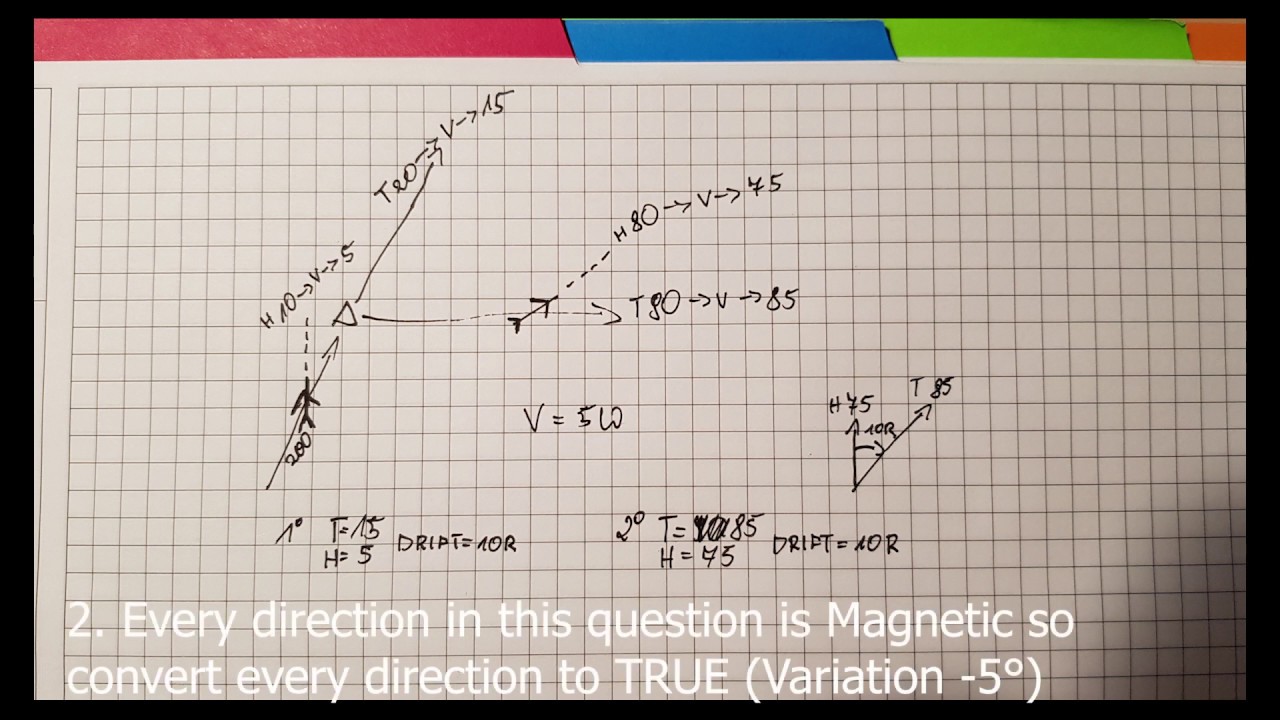 T20→V→15
H80→V→75
H10→V→5
T80→V→85
H75
T 85
10R
V = 5W
200
1° T=15 DRIFT=10R
H=5
2° T= 85 DRIFT=10R
H=75
2. Every direction in this question is Magnetic so
convert every direction to TRUE (Variation -5°)